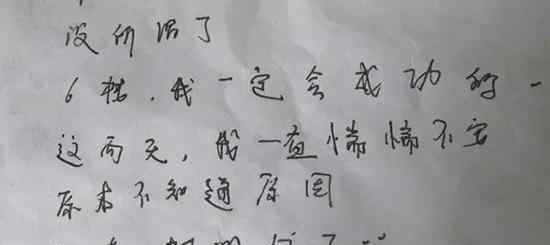 没价值了
6楼.我一定会成功的
这两天,我一直惴惴不安
原本不知道原因